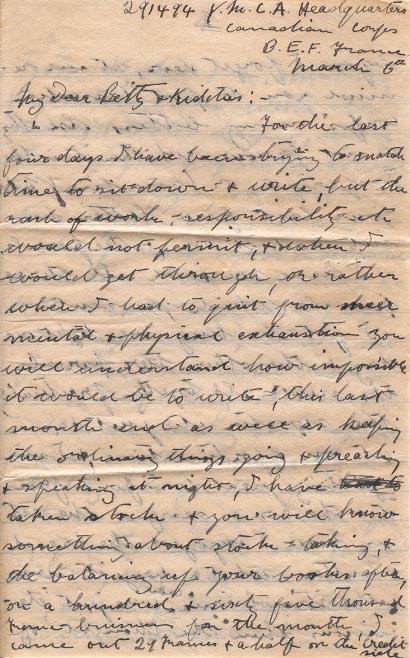 291494 Y.M.C.A. Headquarters
Canadian Corps
B.E.F. France
March 6th
My Dear Betty & Kiddies:-
For the last
four days I have been trying to snatch
time to sit down & write, but the
rush of work - responsibility etc
would not permit, & when I
would get through, or rather
when I had to quit from sheer
mental & physical exhaustion you
will understand how impossible
it would be to write, this last
month end as well as keeping
the ordinary things going & preaching
& speaking at night, I have
taken stock & you will know
something about stock-taking, &
the balancing up your books after,
on a hundred & sixty five thousand
Franc business for the month, I
came out 29 Francs & a half on the Credit
side